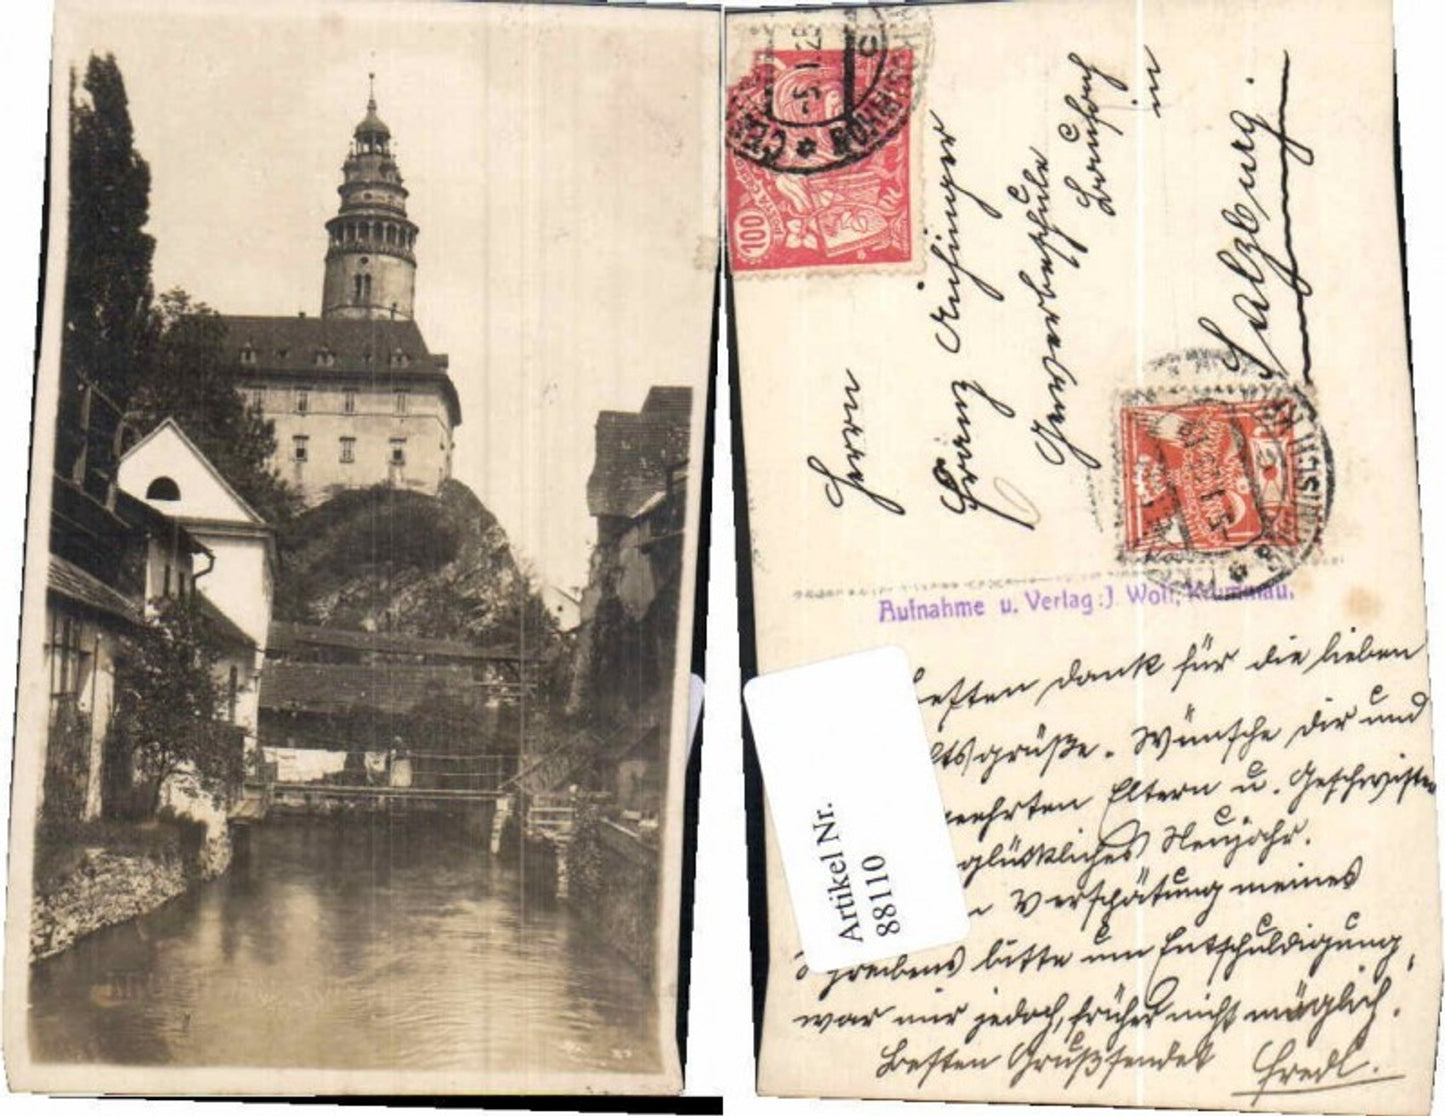 Herrn
Franz
Gewerbeschule
in
Salzburg.
100
-5.I.23
Aufnahme u. Verlag: J. Wolf, Krummau.
Artikel Nr.
88110
besten Dank für die lieben
grüße. Wünsche Dir und
geehrten Eltern u. Geschwister
glückliches Neujahr.
Verspätung meines
Schreibens bitte um Entschuldigung,
war mir jedoch früher nicht möglich.
Besten Gruß sendet Fredl.